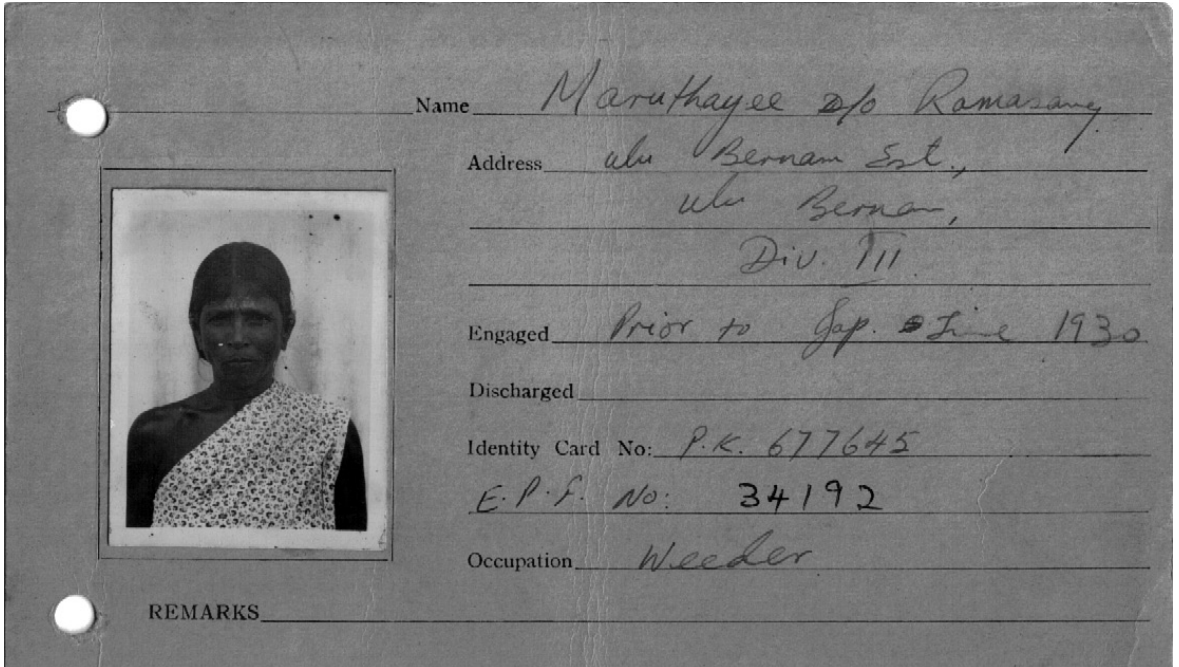 Name Maruthayee D/o Ramasamy
Address Ulu Bernam Est.,
Ulu Bernam,
Div. III
Engaged Prior to Jap. Time 1930
Discharged
Identity Card No: P.K. 677645
E.P.F. No: 34192
Occupation Weeder
REMARKS